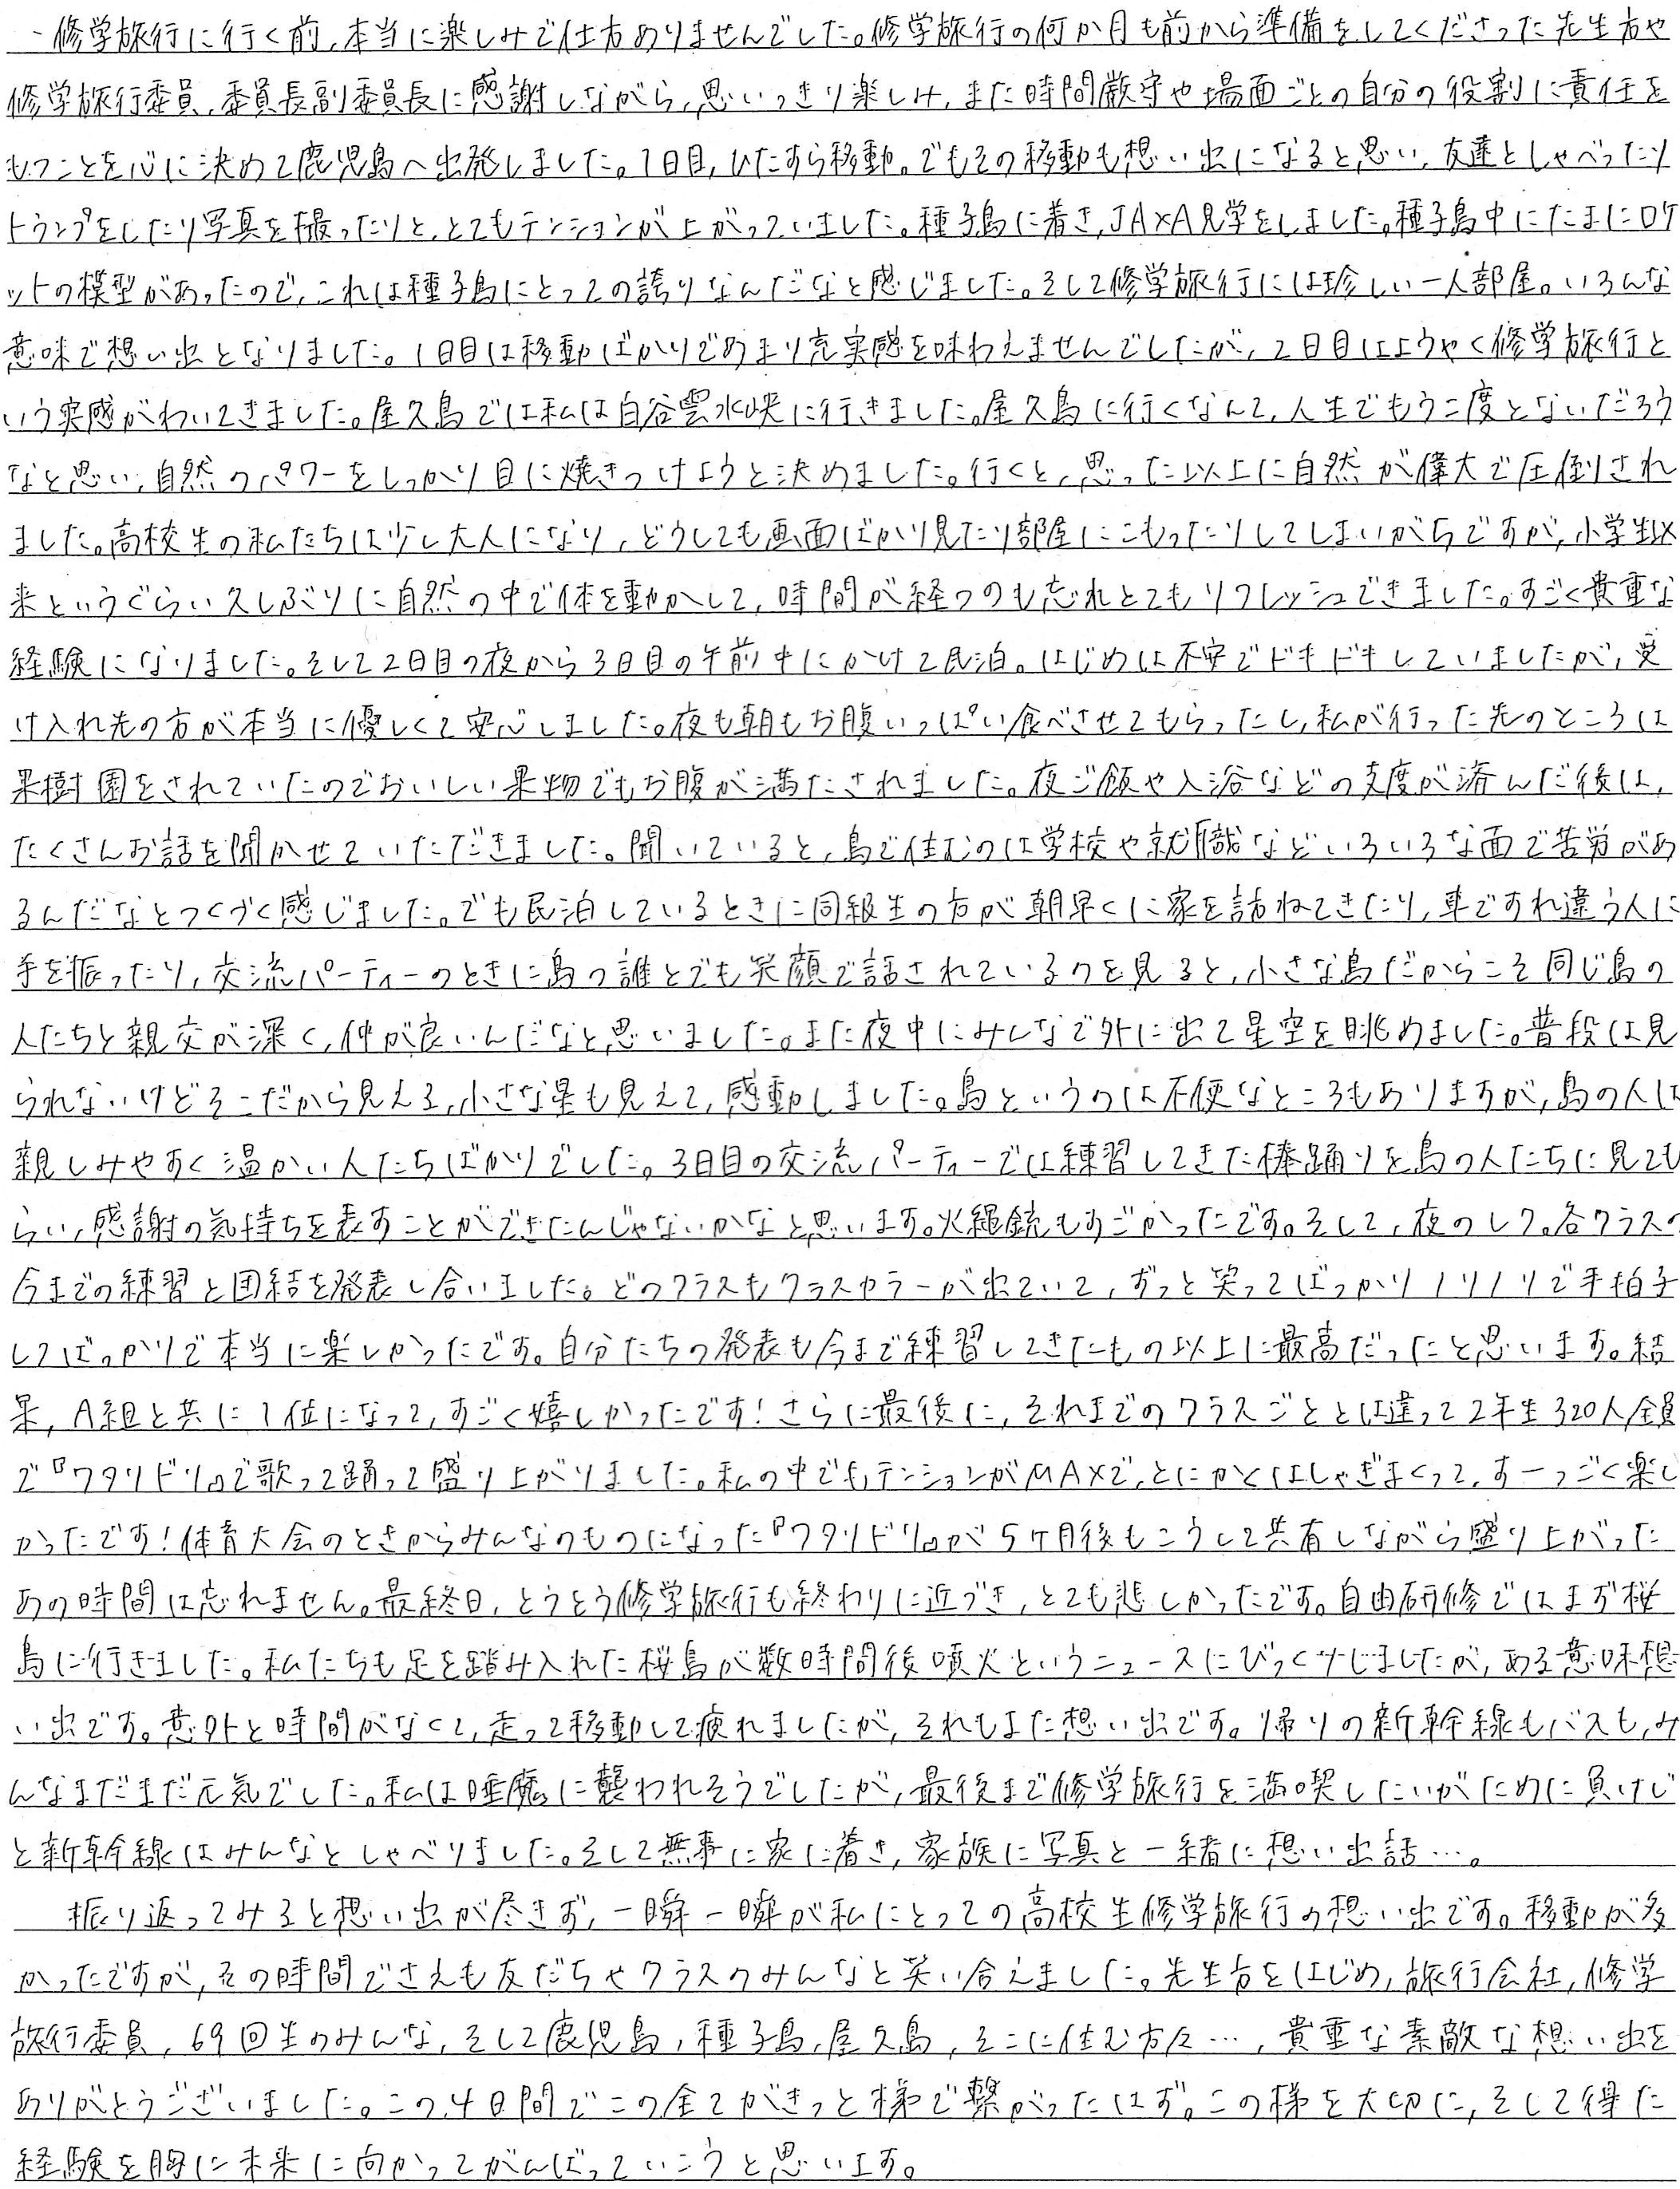 修学旅行に行く前、本当に楽しみで仕方ありませんでした。修学旅行の何か月も前から準備をしてくださった先生方や
修学旅行委員、委員長副委員長に感謝しながら、思いっきり楽しみ、また時間厳守や場面ごとの自分の役割に責任を
もつことを心に決めて鹿児島へ出発しました。1日目、ひたすら移動。でもその移動も想い出になると思い、友達としゃべったり
トランプをしたり写真を撮ったりと、とてもテンションが上がっていました。種子島に着き、JAXA見学をしました。種子島中にたまにロケ
ットの模型があったので、これは種子島にとっての誇りなんだなと感じました。そして修学旅行には珍しい一人部屋。いろんな
意味で想い出となりました。1日目は移動ばかりであまり充実感を味わえませんでしたが、2日目はようやく修学旅行と
いう実感がわいてきました。屋久島では私は白谷雲水峡に行きました。屋久島に行くなんて、人生でもう二度とないだろう
なと思い、自然のパワーをしっかり目に焼きつけようと決めました。行くと、思った以上に自然が偉大で圧倒され
ました。高校生の私たちは少し大人になり、どうしても画面ばかり見たり部屋にこもったりしてしまいがちですが、小学生以
来というぐらい久しぶりに自然の中で体を動かして、時間が経つのも忘れとてもリフレッシュできました。すごく貴重な
経験になりました。そして2日目の夜から3日目の午前中にかけて民泊。はじめは不安でドキドキしていましたが、受
け入れ先の方が本当に優しくて安心しました。夜も朝もお腹いっぱい食べさせてもらったし、私が行った先のところは
果樹園をされていたのでおいしい果物でもお腹が満たされました。夜ご飯や入浴などの支度が済んだ後は、
たくさんお話を聞かせていただきました。聞いていると、島で住むのは学校や就職などいろいろな面で苦労があ
るんだなとつくづく感じました。でも民泊しているときに同級生の方が朝早くに家を訪ねてきたり、車ですれ違う人に
手を振ったり、交流パーティーのときに島の誰とでも笑顔で話されているのを見ると、小さな島だからこそ同じ島の
人たちと親交が深く、仲が良いんだなと思いました。また夜中にみんなで外に出て星空を眺めました。普段は見
られないけどそこだから見える、小さな星も見えて、感動しました。島というのは不便なところもありますが、島の人は
親しみやすく温かい人たちばかりでした。3日目の交流パーティーでは練習してきた棒踊りを島の人たちに見ても
らい、感謝の気持ちを表すことができたんじゃないかなと思います。火縄銃もすごかったです。そして、夜のレク。各クラスの
今までの練習と団結を発表し合いました。どのクラスもクラスカラーが出ていて、ずっと笑ってばっかりノリノリで手拍子
してばっかりで本当に楽しかったです。自分たちの発表も今まで練習してきたもの以上に最高だったと思います。結
果、A組と共に1位になって、すごく嬉しかったです!さらに最後に、それまでのクラスごととは違って2年生320人全員
で『ワタリドリ』で歌って踊って盛り上がりました。私の中でもテンションがMAXで、とにかくはしゃぎまくって、すーっごく楽し
かったです!体育大会のときからみんなのものになった『ワタリドリ』が5ケ月後もこうして共有しながら盛り上がった
あの時間は忘れません。最終日、とうとう修学旅行も終わりに近づき、とても悲しかったです。自由研修ではまず桜
島に行きました。私たちも足を踏み入れた桜島が数時間後噴火というニュースにびっくりしましたが、ある意味想
い出です。意外と時間がなくて、走って移動して疲れましたが、それもまた想い出です。帰りの新幹線もバスも、み
んなまだまだ元気でした。私は睡魔に襲われそうでしたが、最後まで修学旅行を満喫したいがために負けじ
と新幹線はみんなとしゃべりました。そして無事に家に着き、家族に写真と一緒に想い出話…。
振り返ってみると想い出が尽きず、一瞬一瞬が私にとっての高校生修学旅行の想い出です。移動が多
かったですが、その時間でさえも友だちやクラスのみんなと笑い合えました。先生方をはじめ、旅行会社、修学
旅行委員、69回生のみんな、そして鹿児島、種子島、屋久島、そこに住む方々…、貴重な素敵な想い出を
ありがとうございました。この4日間でこの全てがきっと梯で繋がったはず。この梯を大切に、そして得た
経験を胸に未来に向かってがんばっていこうと思います。